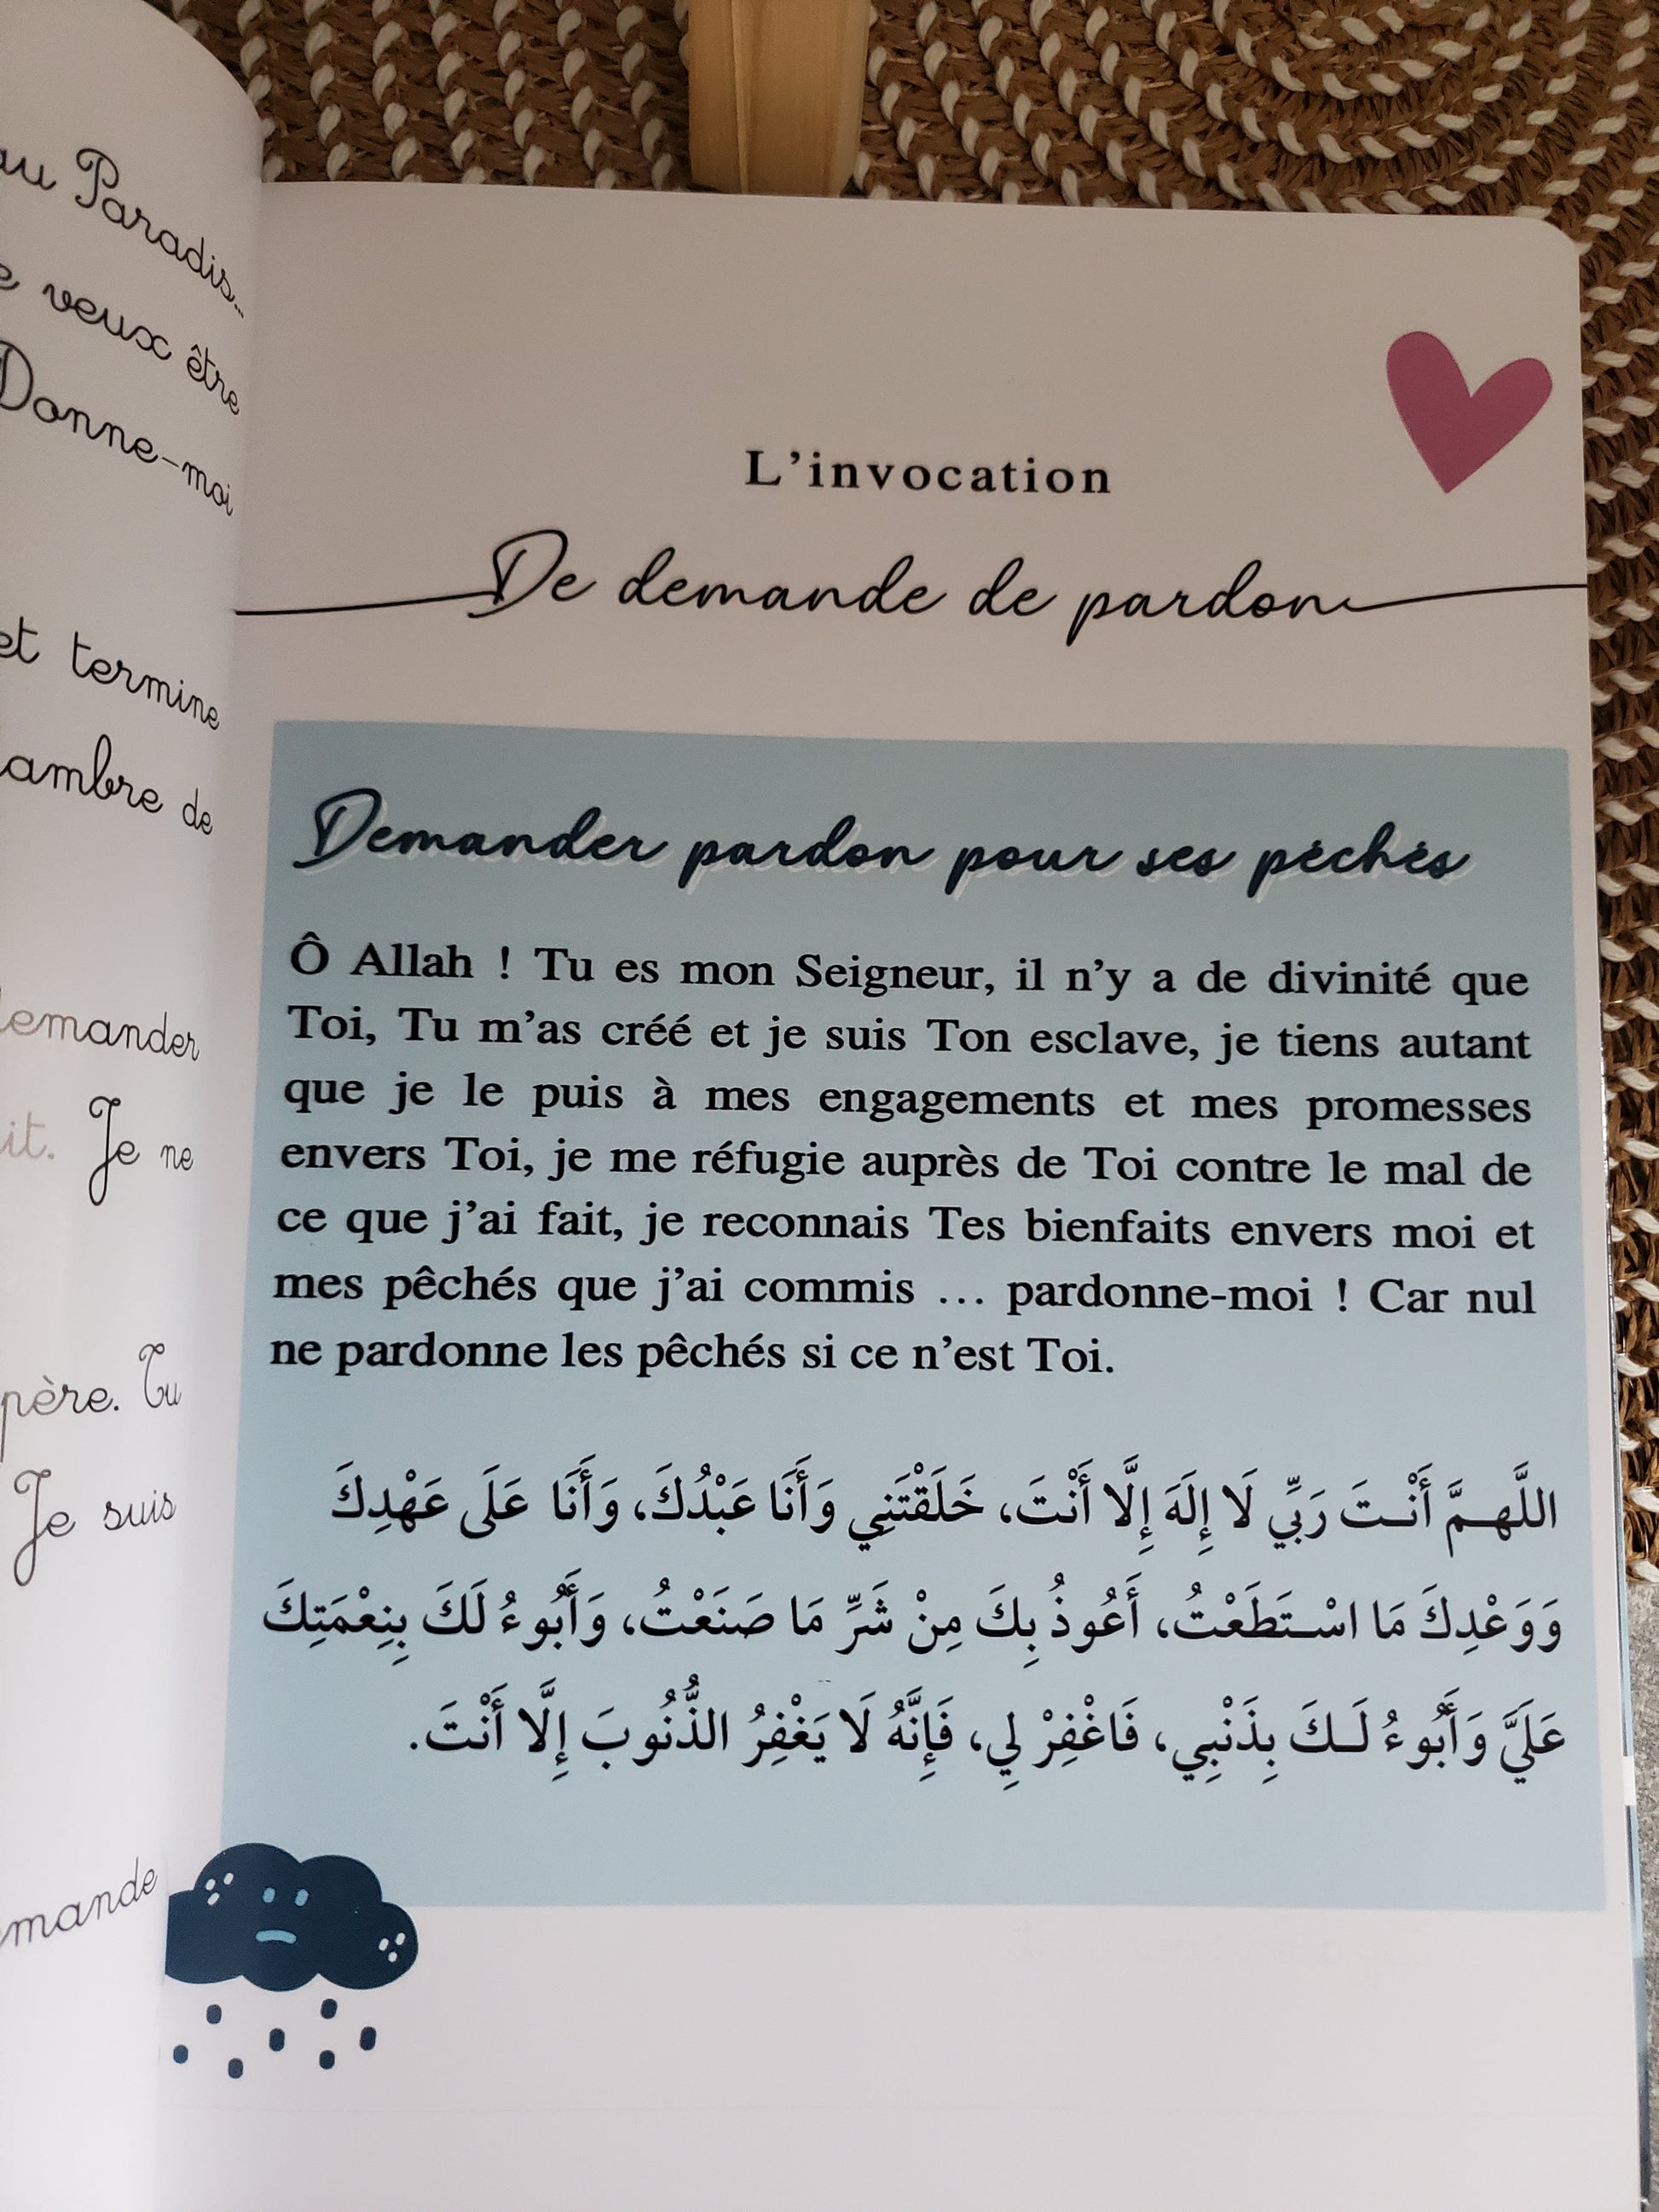 au Paradis...
veux être
Donne-moi
et termine
de
Je ne
père. Tu
Je suis
L'invocation
De demande de pardon
Demander pardon pour ses péchés
Ô Allah ! Tu es mon Seigneur, il n'y a de divinité que
Toi, Tu m'as créé et je suis Ton esclave, je tiens autant
que je le puis à mes engagements et mes promesses
envers Toi, je me réfugie auprès de Toi contre le mal de
ce que j'ai fait, je reconnais Tes bienfaits envers moi et
mes pêchés que j'ai commis ... pardonne-moi ! Car nul
ne pardonne les pêchés si ce n'est Toi.
اللَّهـمَّ أَنْـتَ رَبِّي لَا إِلَهَ إِلَّا أَنْتَ، خَلَقْتَنِي وَأَنَا عَبْدُكَ، وَأَنَا عَلَى عَهْدِكَ
وَوَعْدِكَ مَا اسْـتَطَعْتُ، أَعُوذُ بِكَ مِنْ شَرِّ مَا صَنَعْتُ، وَأَبُوءُ لَكَ بِنِعْمَتِكَ
عَلَيَّ وَأَبُوءُ لَـكَ بِذَنْبِي، فَاغْفِرْ لِي، فَإِنَّهُ لَا يَغْفِرُ الذُّنُوبَ إِلَّا أَنْتَ.